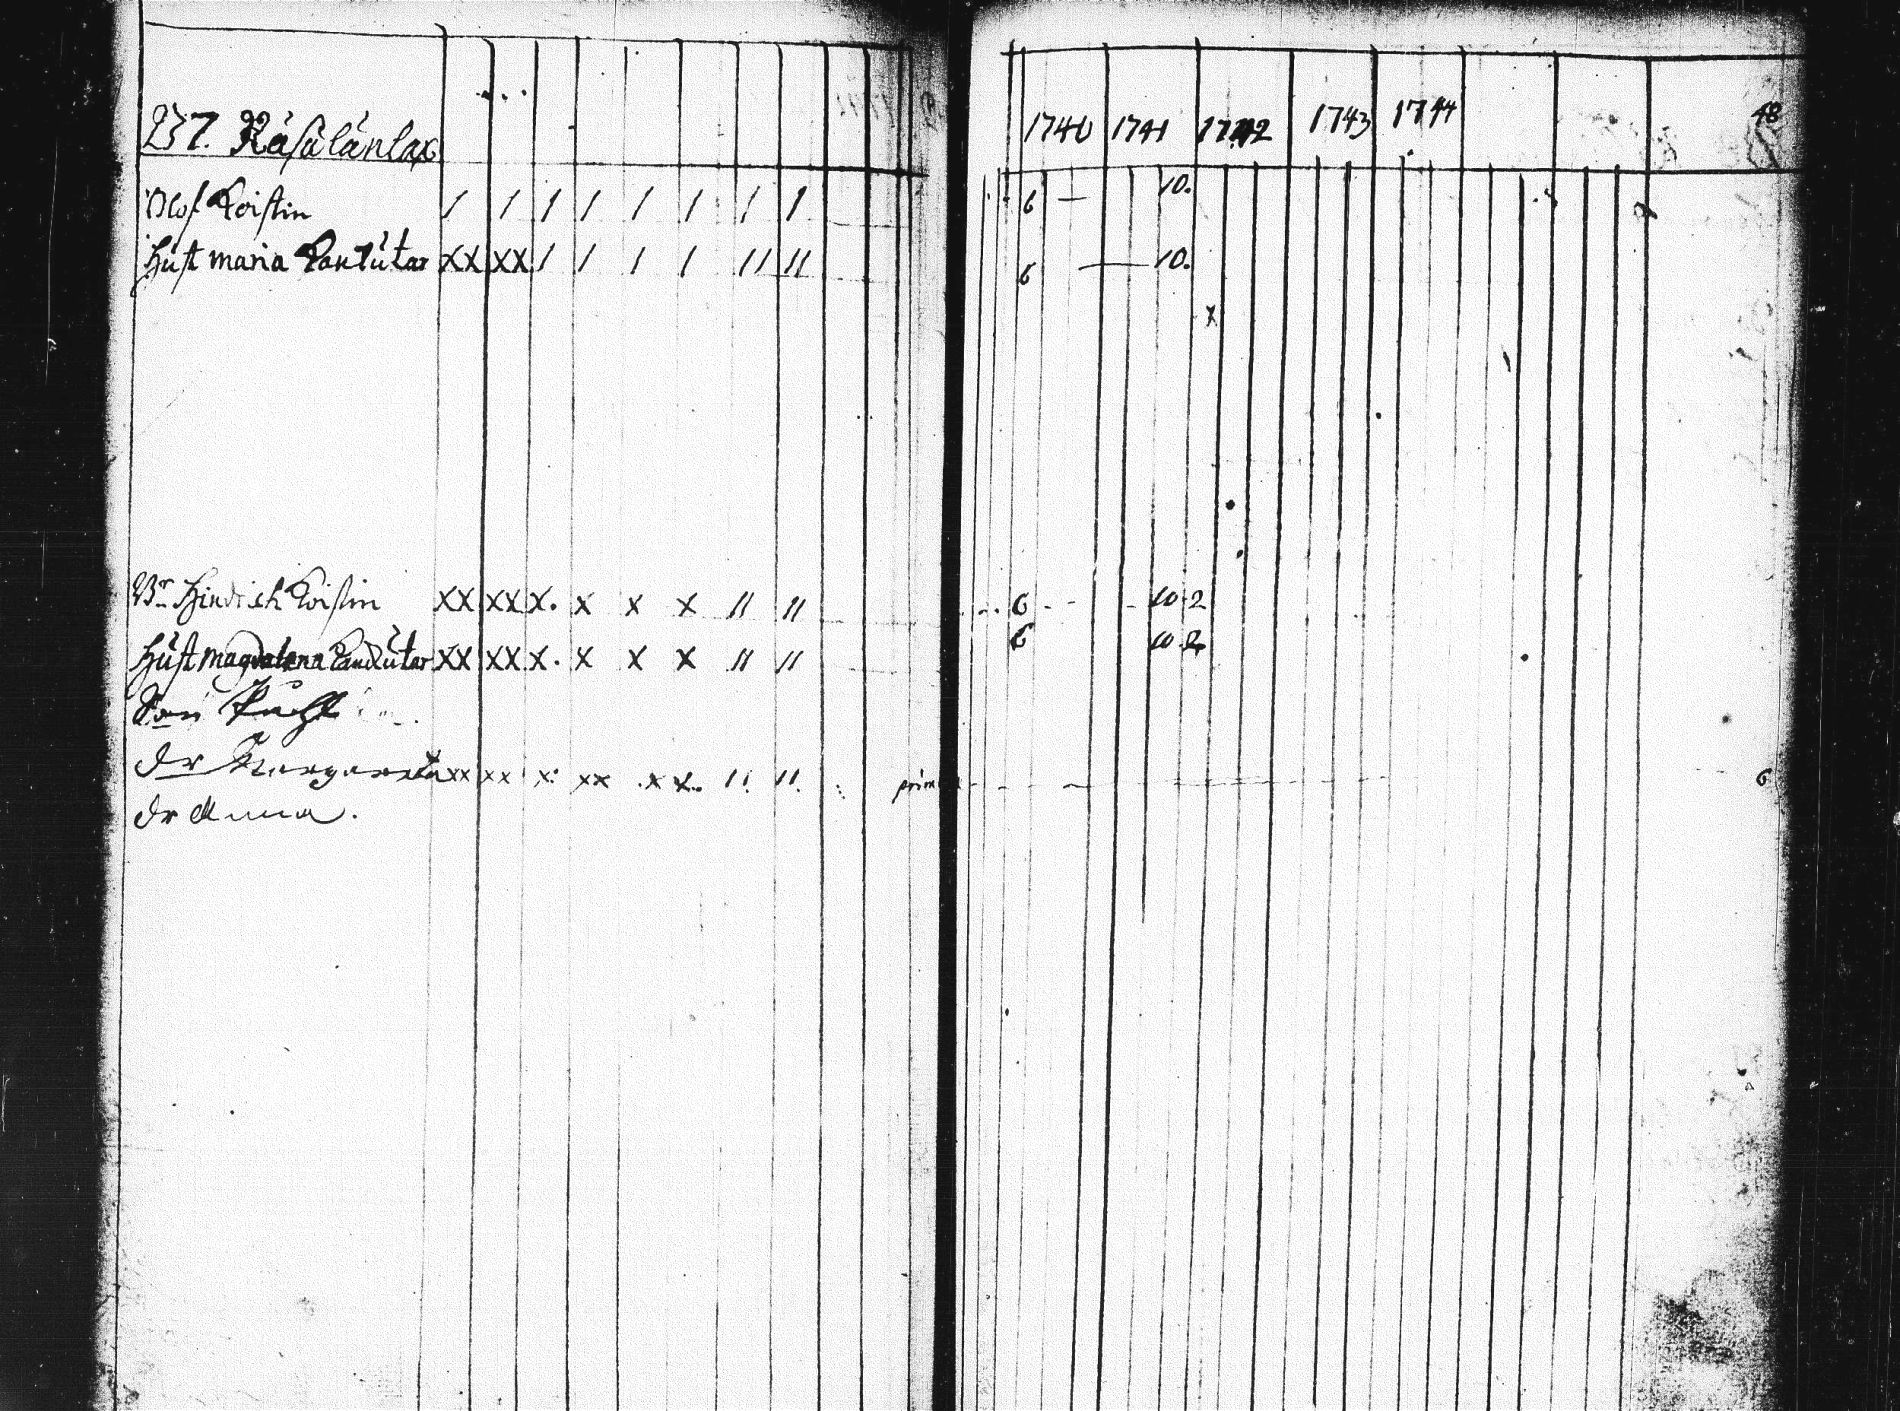 237. Räsälänlax
Olof Koistin
1 1 1 1 1 1 1 1
6 — 10.
Hust maria
XX XX 1 1 1 1 11 11
6 — 10.
x
Br Hindrich Koistin
XX XX X. X X X 11 11
6 10.2
Hust magdalena
XX XX X. X X X 11 11
6 10.2
Son
dr Margareta
xx xx x. xx x x. 11. 11.
6
dr Anna.
1740 1741 1742 1743 1744
48